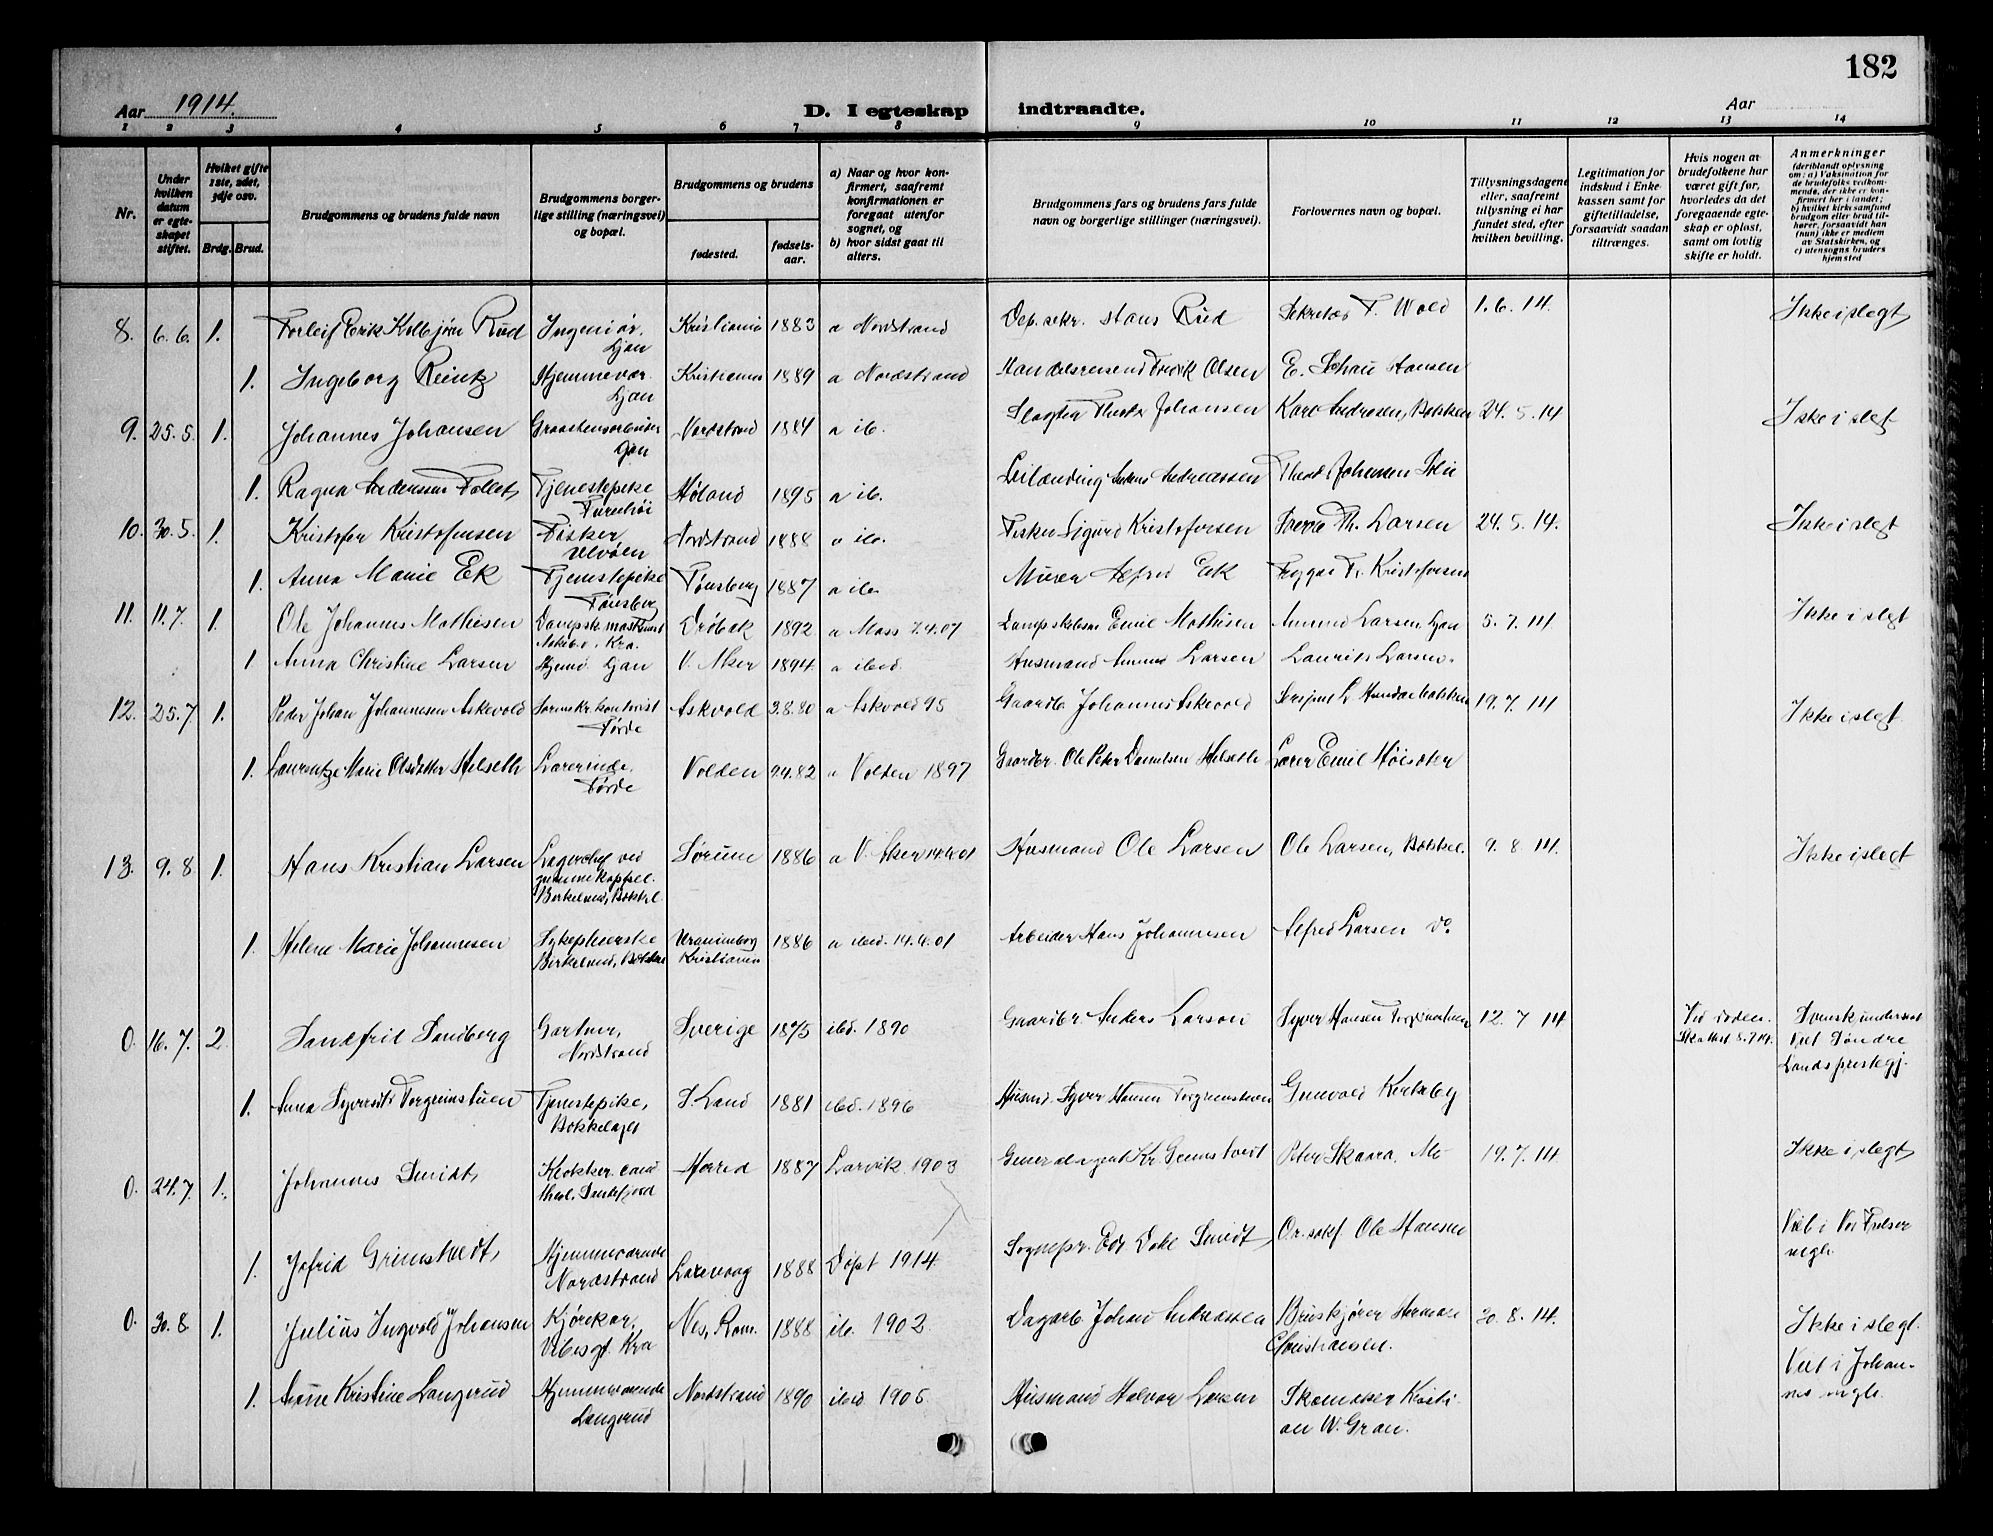 182
Aar 1914.
D. I egteskap indtraadte.
Aar
1 2 3 4 5 6 7 8 9 10 11 12 13 14
Nr.
Under hvilken datum er egteskapet stiftet.
Hvilket gifte 1ste, 2det, 3dje osv.
Brdg. Brud.
Brudgommens og brudens fulde navn
Brudgommens borgerlige stilling (næringsvei) og bopæl.
Brudgommens og brudens
fødested.
fødselsaar.
a) Naar og hvor konfirmert, saafremt konfirmationen er foregaat utenfor sognet, og
b) hvor sidst gaat til alters.
Brudgommens fars og brudens fars fulde navn og borgerlige stillinger (næringsvei).
Forlovernes navn og bopæl.
Tillysningsdagene eller, saafremt tillysning ei har fundet sted, efter hvilken bevilling.
Legitimation for indskud i Enkekassen samt for giftetilladelse, forsaavidt saadan tiltrænges.
Hvis nogen av brudefolkene har været gift før, hvorledes da det foregaaende egteskap er opløst, samt om lovlig skifte er holdt.
Anmerkninger (deriblandt oplysning om: a) Vaksination for de brudefolks vedkommende, der ikke er konfirmert her i landet; b) hvilket kirkesamfund brudgom eller brud tilhører, forsaavidt han (hun) ikke er medlem av Statskirken, og c) utensogns bruders hjemsted
8. 6.6. 1. Torleif Erik Kolbjørn Rud Ingeniør, Kristiania 1883 a Nordstrand Dep. sekr. Hans Rud Sekretær T. Wold 1.6.14. Ikke i slegt
Ljan
1. Ingeborg Hjemmevær. Kristiania 1889 a Nordstrand Handelsreisend Fredrik Olsen E. Schau Hansen
Ljan
9. 25.5. 1. Johannes Johansen Graastensarbeider Nordstrand 1884 a ib. Slagter Theodor Johansen Karl Andresen, Bækken 24.5.14 Ikke i slegt
Ljan
1. Ragna Andersen Tjenestepike Høland 1895 a ib. Anders Andreassen Theod. Johansen
10. 30.5. 1. Kristofer Kristofersen Fisker Nordstrand 1888 a ib. Fisker Sigurd Kristofersen Th. Larsen 24.5.14. Ikke i slegt
Ulvøen
1. Anna Marie Ek Tjenestepike Tønsberg 1887 a ib. Murer Alfred Ek Trygve Fr. Kristofersen
Tønsberg
11. 11.7. 1. Ole Johannes Mathisen Dampsk.maskinist Drøbak 1892 a Moss 7.4.07 Emil Mathisen Amund Larsen Ljan 5.7.14 Ikke i slegt
1 Anna Christine Larsen Hjemv. Ljan V. Aker 1894 a ibid. Husmand Amund Larsen Laurits Larsen.
12. 25.7 1. Peder Johan Johannesen Askevold Askvold 3.8.80 a Askvold 95 Gaardb. Johannes Askevold 19.7.14 Ikke i slegt
Førde
1. Laurentze Marie Olsdatter Helseth Lærerinde. Volden 82 a Volden 1897 Gaardbr. Ole Peter Danielsen Helseth Lærer Emil
Førde
13. 9.8. 1. Hans Kristian Larsen Lagerchef ved Sørum 1886 a V. Aker 14.4.01 Husmand Ole Larsen Ole Larsen, Bækkel. 9.8.14. Ikke i slegt
1. Helene Marie Johannesen Sykepleierske Uranienborg 1886 a ibid. 14.4.01 Arbeider Hans Johannesen Alfred Larsen do
Kristiania
0. 16.7. 2. Sandfrid Sandberg Gartner, Sverige 1875 ibd. 1890 Gaardbr. Anders Larson Syver Hansen Torgrimstuen 12.7.14 Ved døden. Svensk undersaat
Nordstrand Skiftet 8.7.14. Viet Søndre
Lands prestegj.
1. Anna Syversdtr Torgrimstuen Tjenestepike, S. Land 1881 ibd. 1896 Husmd. Syver Hansen Torgrimstuen
Bækkelaget
0. 24.7. 1. Johannes Smidt, Klokker cand Larvik 1903 Generalagent Kr. Grimstvedt Peter Skaara. 19.7.14. Ikke i slegt,
theol. Sandefjord
1. Jofrid Grimstvedt, Hjemmeværende Laxevaag 1888 Døpt 1914 Sognepr. Edv Dahl Smidt, Or.sakf. Ole Hansen Viet i Vor Frelser
Nordstrand
0. 30.8. 1. Julius Ingvald Johansen Kjørekar, Nes, Rom. 1888 ib. 1902 Dagarb. Johan Andreassen Herman 30.8.14. Ikke i slegt.
Vibesgt. Kra Christiansen.
1. Kristine Langerud Hjemmeværende Nordstrand 1890 ibid 1905 Husmand Halvor Larsen Skomaker Kristi- Viet i Johan-
Langerud an W. Gran.